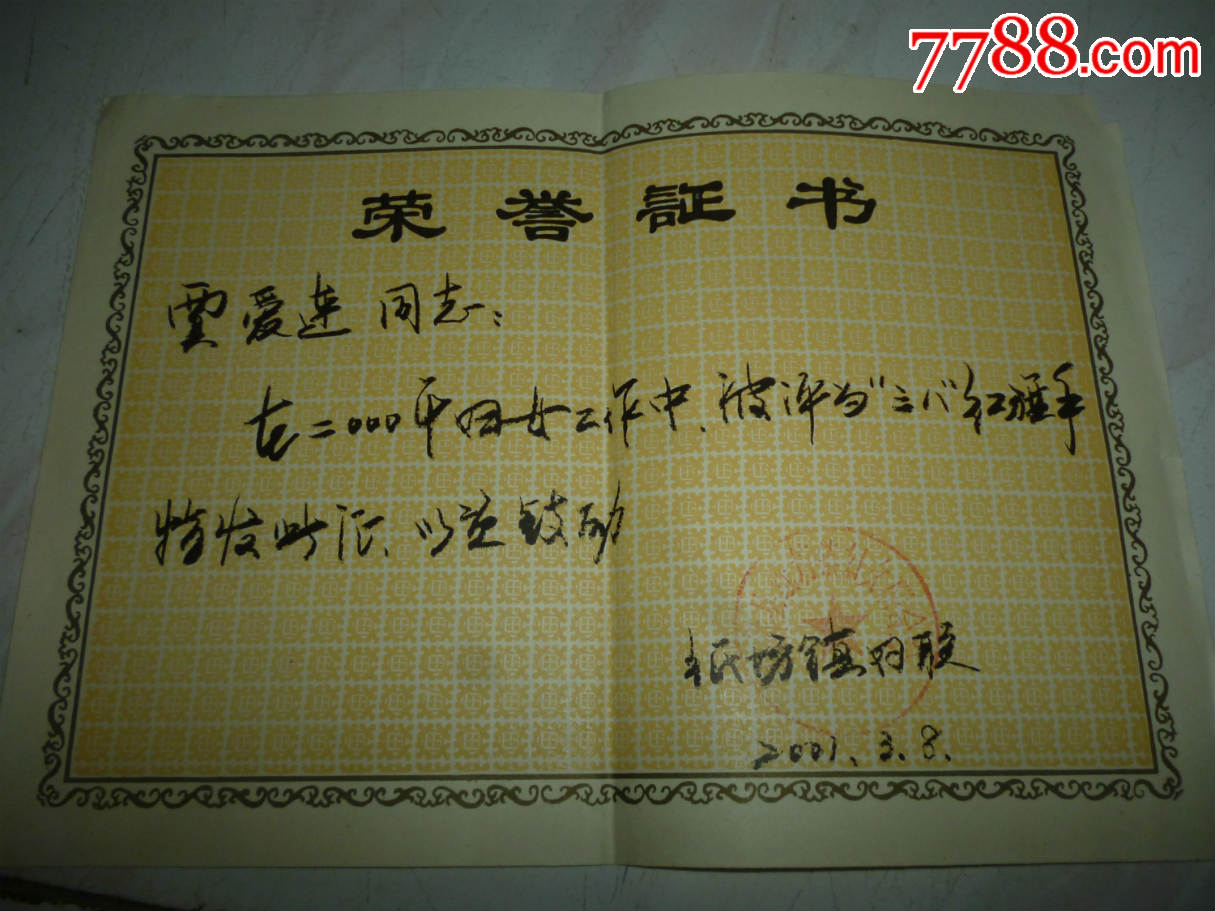 7788.com
荣誉証书
贾爱莲同志：
在二000年妇女工作中、被评为"三八"红旗手
特发此证、以资鼓励
纸坊镇妇联
2001.3.8.